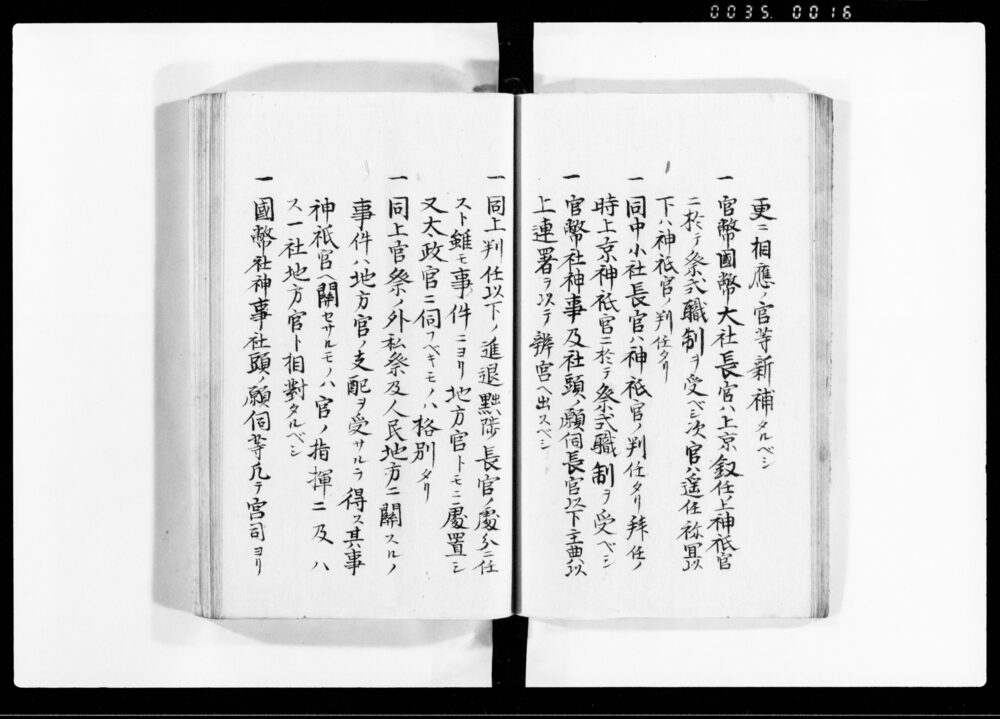 0035.0016
更ニ相應ノ官等新補タルベシ
一官幣國幣大社長官ハ上京敘任ノ上神祇官
ニ於テ祭式職制ヲ受ベシ次官ハ遥任祢冝以
下ハ神祇官ノ判任タリ
一同中小社長官ハ神祇官ノ判任タリ拜任ノ
時上京神祇官ニ於テ祭式職制ヲ受ベシ
一官幣社神事及社頭ノ願伺長官以下主典以
上連署ヲ以テ辨官ヘ出スベシ
一同上判任以下ノ進退黜陟長官ノ處分ニ任
スト雖モ事件ニヨリ地方官トモニ處置シ
又太政官ニ伺フベキモノハ格別タリ
一同上官祭ノ外私祭及人民地方ニ關スルノ
事件ハ地方官ノ支配ヲ受サルヲ得ス其事
神祇官ヘ關セサルモノハ官ノ指揮ニ及ハ
ス一社地方官ト相對タルベシ
一國幣社神事社頭ノ願伺等凡テ宮司ヨリ